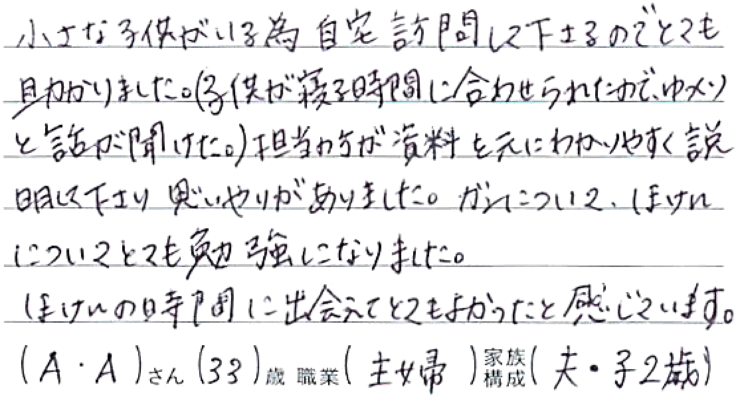 小さな子供がいる為自宅訪問して下さるのでとても
助かりました。(子供が寝る時間に合わせられたので、ゆっくり
と話が聞けた。)担当の方が資料を元にわかりやすく説
明して下さり思いやりがありました。ガンについて、ほけん
についてとても勉強になりました。
ほけんの時間に出会えてとてもよかったと感じています。
(A・A)さん(33)歳 職業(主婦)家族構成(夫・子2歳)